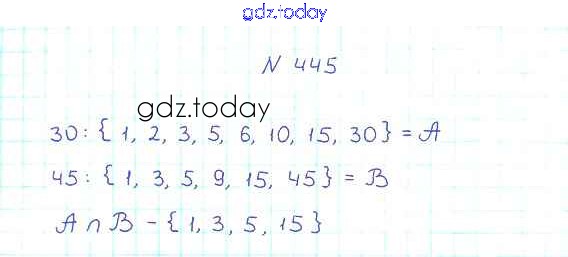 gdz.today
N 445
gdz.today
30: { 1, 2, 3, 5, 6, 10, 15, 30} = A
45: { 1, 3, 5, 9, 15, 45} = B
A ∩ B - { 1, 3, 5, 15}